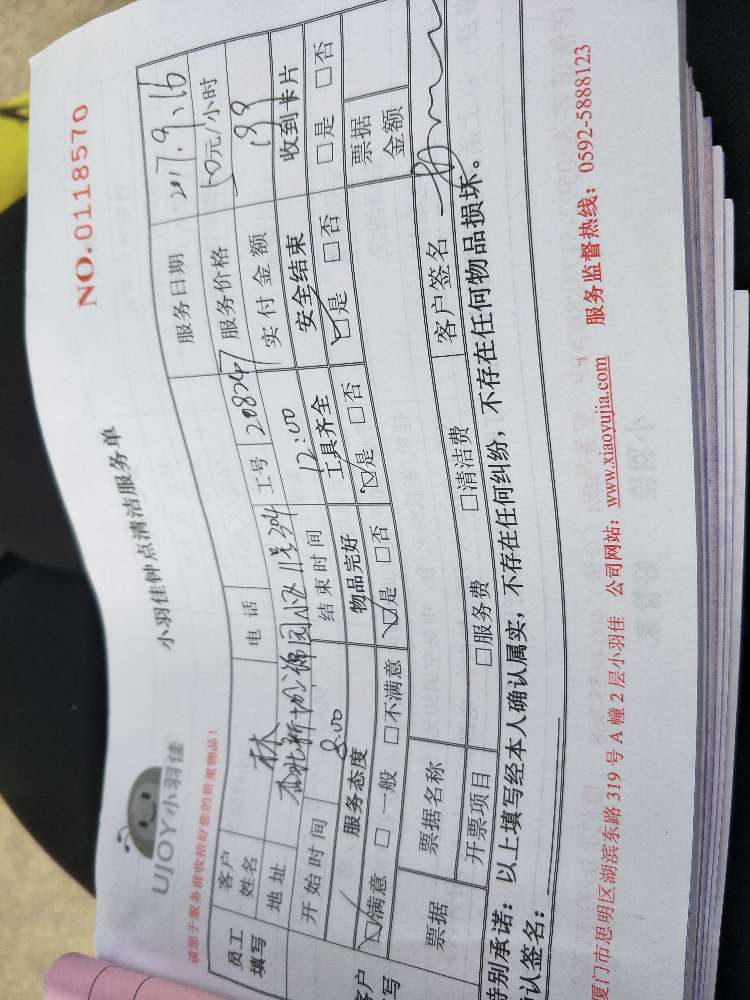 UJOY小羽佳
小羽佳钟点清洁服务单
NO.0118570
请您于服务前收拾好您的贵重物品!
员工填写
客户姓名 林 电话 工号 208247 服务日期 2017.9.16
地址 新城锦园小区 服务价格 50元/小时
开始时间 8:00 结束时间 12:00 实付金额
服务态度 物品完好 工具齐全 安全结束 收到卡片
☑满意 □一般 □不满意 ☑是 □否 ☑是 □否 ☑是 □否 □是 □否
票据 票据名称 票据金额
开票项目 □服务费 □清洁费 客户签名
特别承诺:以上填写经本人确认属实,不存在任何纠纷,不存在任何物品损坏。
确认签名:
厦门市思明区湖滨东路 319 号 A 幢 2 层小羽佳 公司网站:www.xiaoyujia.com 服务监督热线:0592-5888123